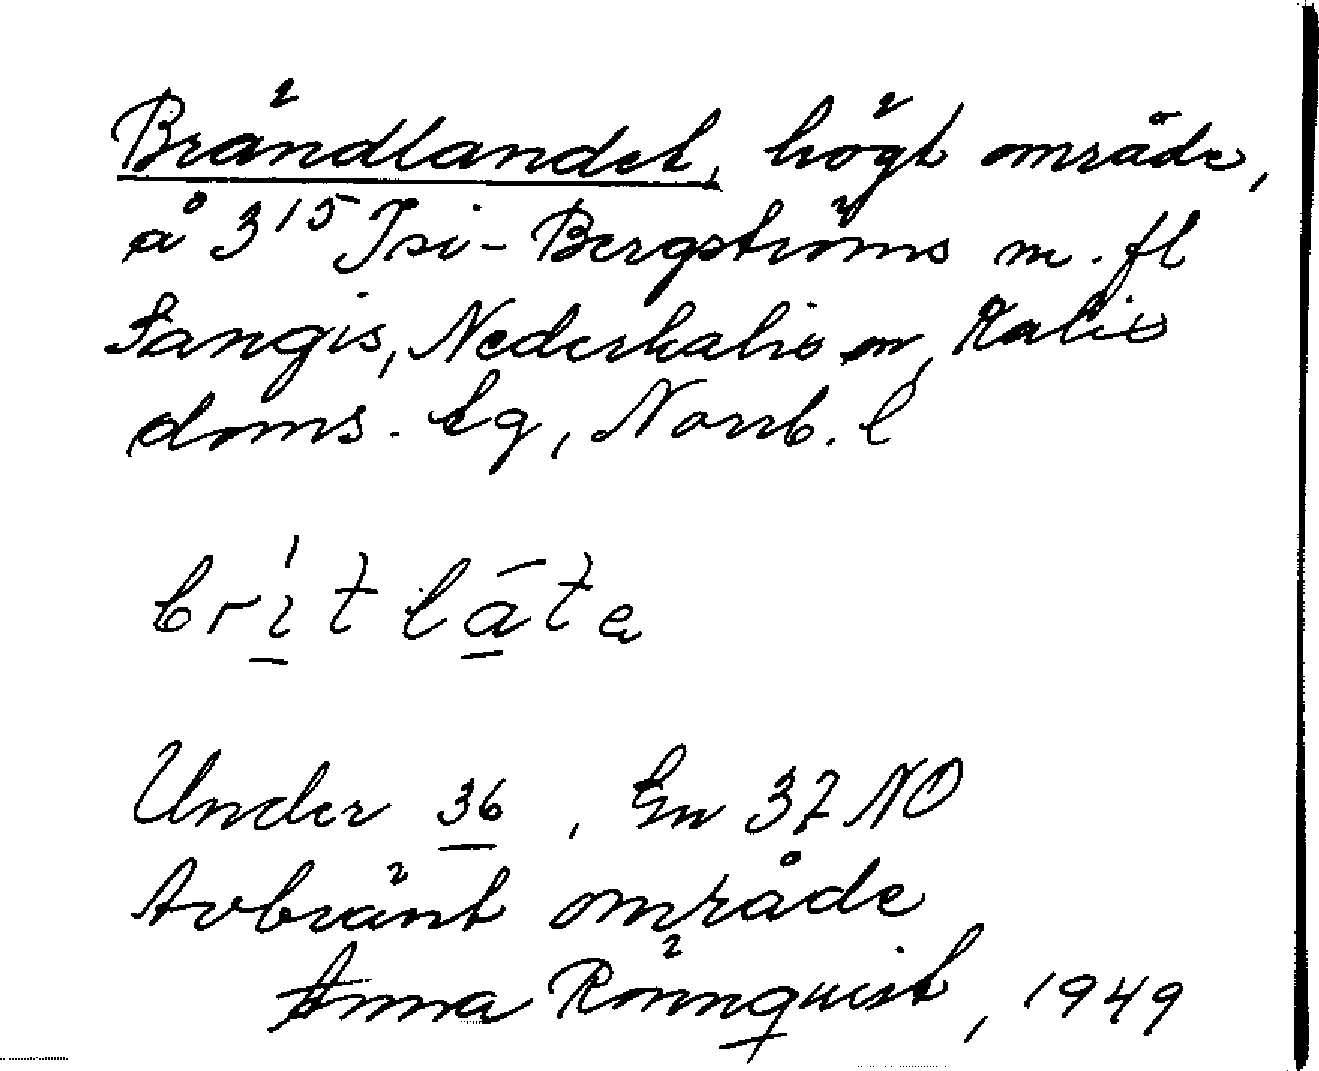 Brändlandet, högt område,
å 3¹⁵ Isi-Bergströms m. fl
Sangis, Nederkalix sn, Kalix
doms. lg, Norrb. l
brı́t lāte
Under 36, En 37 NO
Avbränt område
Anna Rönnquist, 1949